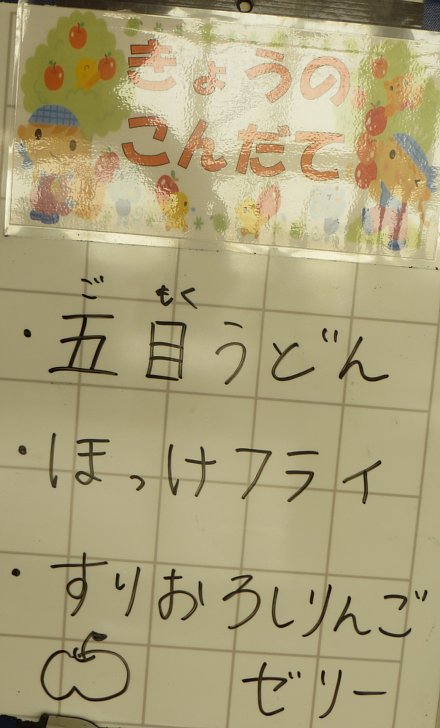 きょうの
こんだて
ご もく
・五目うどん
・ほっけフライ
・すりおろしりんご
ゼリー